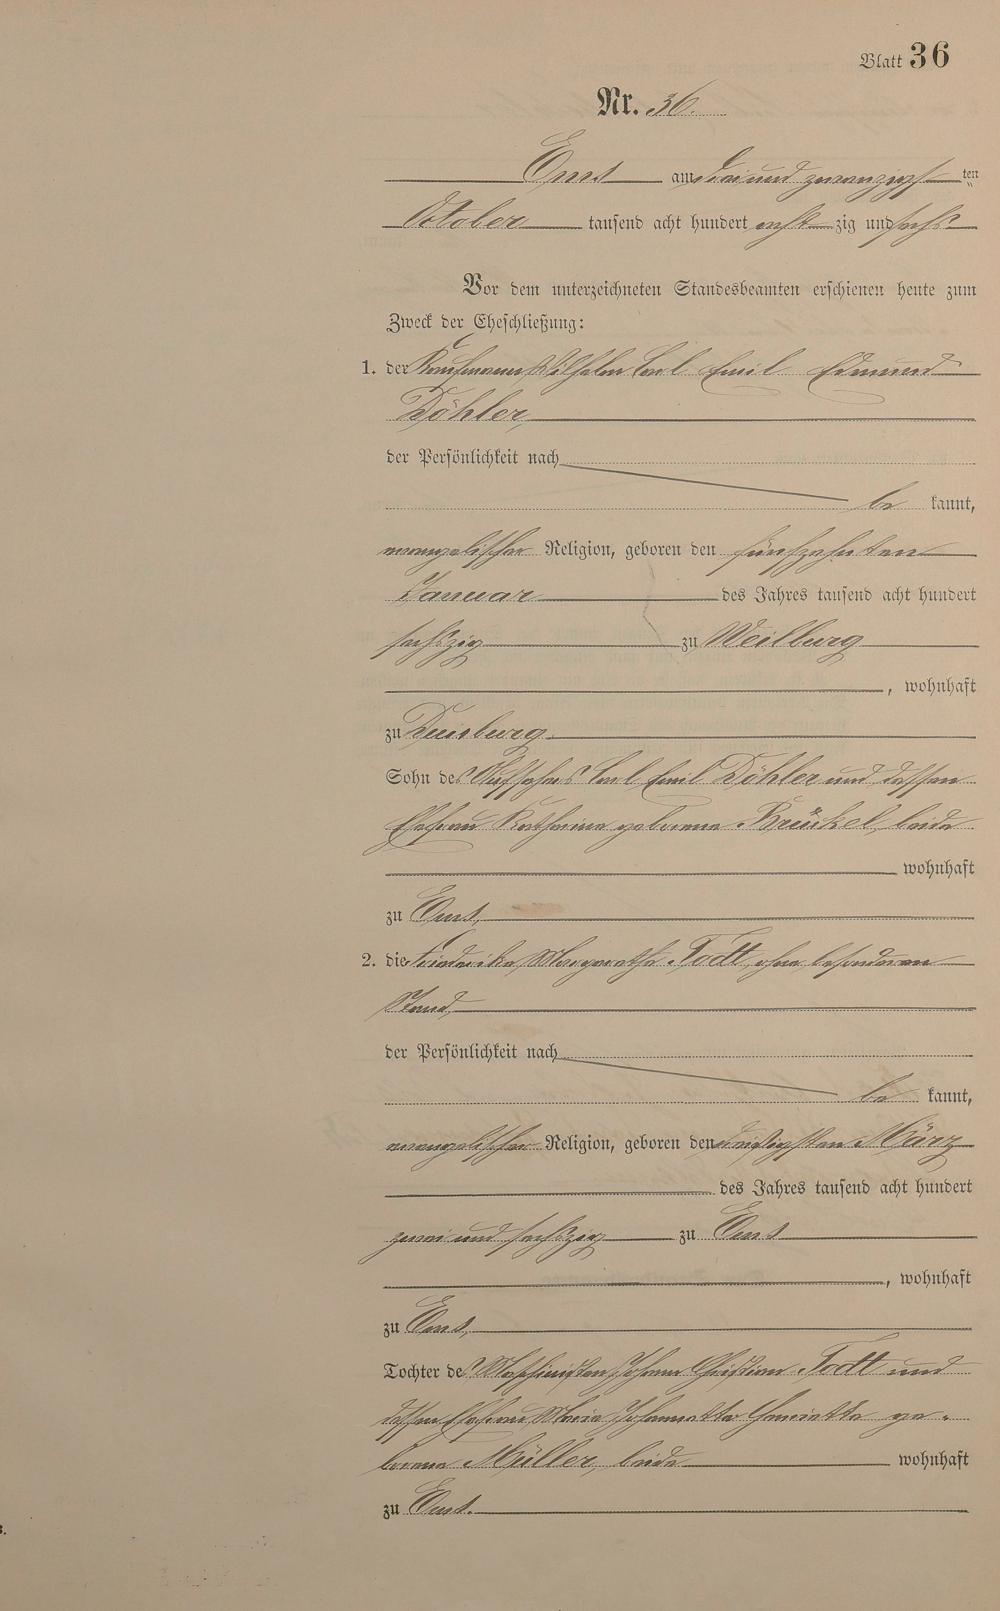 Blatt 36
Nr. 36.
Ems am drei und zwanzigsten
October tausend acht hundert achtzig und sechs
Vor dem unterzeichneten Standesbeamten erschienen heute zum
Zweck der Eheschließung:
1. der Kaufmann Wilhelm Carl Emil Edmund
Döhler,
der Persönlichkeit nach
be kannt,
evangelischer Religion, geboren den fünfzehnten
Januar des Jahres tausend acht hundert
sechszig zu Weilburg
, wohnhaft
zu Duisburg.
Sohn des Aufsehers Carl Emil Döhler und dessen
Ehefrau Katharine geborene Brückel, beide
wohnhaft
zu Ems,
2. die Friederike Margarethe Todt, ohne besonderen
Stand,
der Persönlichkeit nach
be kannt,
evangelischer Religion, geboren den dreißigsten März
des Jahres tausend acht hundert
zwei und sechszig zu Ems
, wohnhaft
zu Ems,
Tochter des Maschinisten Johann Christian Todt und
dessen Ehefrau Marie Johannette Henriette ge-
borene Müller, beide wohnhaft
zu Ems.